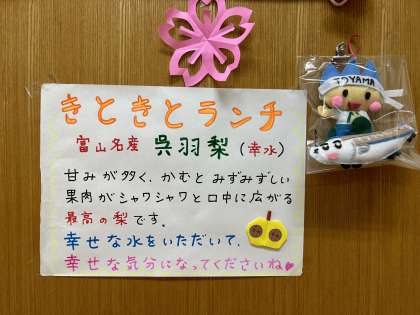 きときとランチ
富山名産 呉羽梨(幸水)
甘みが多く、かむと みずみずしい
果肉がシャワシャワと口中に広がる
最高の梨です。
幸せな水をいただいて、
幸せな気分になってくださいね♥
TOYAMA